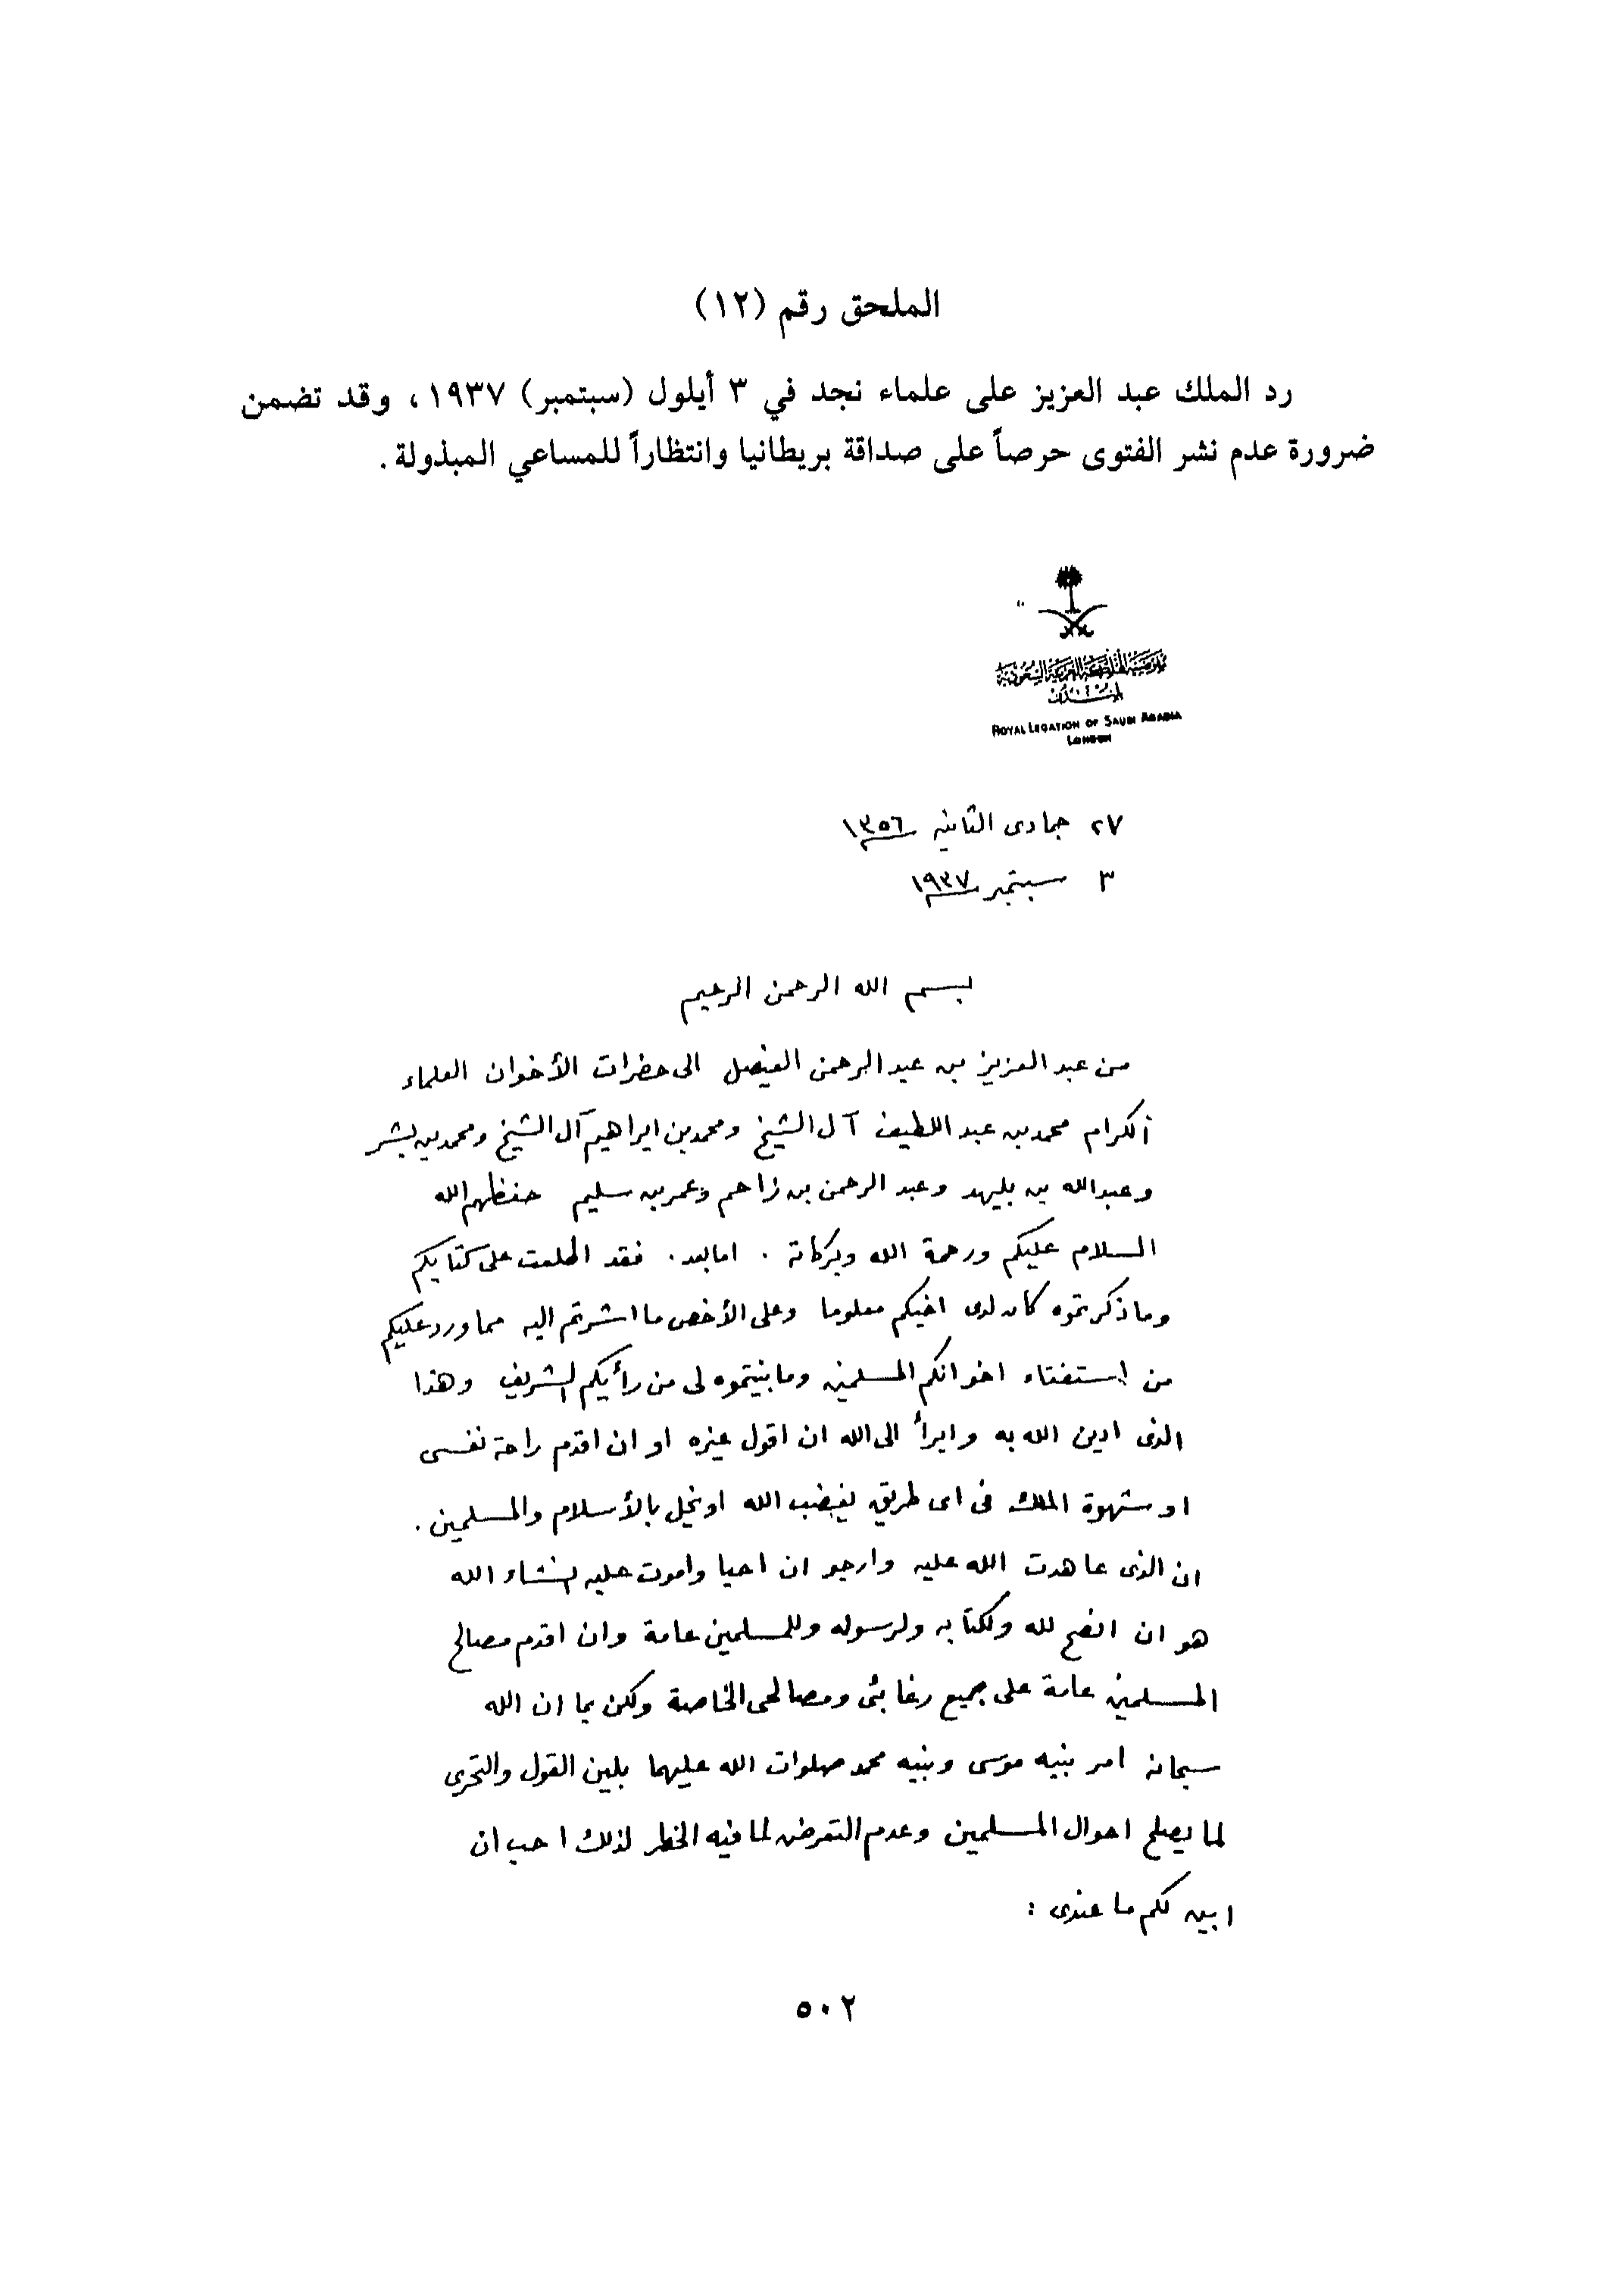 الملحق رقم (١٢)
رد الملك عبد العزيز على علماء نجد في ٣ أيلول (سبتمبر) ١٩٣٧، وقد تضمن
ضرورة عدم نشر الفتوى حرصاً على صداقة بريطانيا وانتظاراً للمساعي المبذولة.
المملكة العربية السعودية
ROYAL LEGATION OF SAUDI ARABIA
LONDON
٢٧ جمادى الثانيه ١٣٥٦
٣ سبتمبر ١٩٣٧
بسم الله الرحمن الرحيم
من عبد العزيز بن عبد الرحمن الفيصل الى حضرات الأخوان العلماء
الكرام محمد بن عبد اللطيف آل الشيخ ومحمد بن ابراهيم آل الشيخ ومحمد بن بشر
وعبدالله بن بليهد وعبد الرحمن بن زاحم وعمر بن سليم حفظهم الله
السلام عليكم ورحمة الله وبركاته . اما بعد . فقد اطلعت على كتابكم
وما ذكرتموه كان لدى اخيكم معلوما وعلى الأخص ما اشرتم اليه مما ورد عليكم
من استفتاء اخوانكم المسلمين وما بينتموه لى من رأيكم الشريف وهذا
الذى ادين الله به وابرأ الى الله ان اقول غيره او ان اقدم راحة نفسى
او شهوة الملك فى اى طريق يغضب الله او يخل بالأسلام والمسلمين .
ان الذى عاهدت الله عليه وارجو ان احيا واموت عليه انشاء الله
هو ان انصح لله ولكتابه ولرسوله وللمسلمين عامة وان اقدم مصالح
المسلمين عامة على جميع رغابئى ومصالحى الخاصة ولكن بما ان الله
سبحانه امر نبيه موسى ونبيه محمد صلوات الله عليهما بلين القول والتحرى
لما يصلح احوال المسلمين وعدم التعرض لما فيه الخطر لذلك احب ان
ابين لكم ما عندى :
٥٠٢